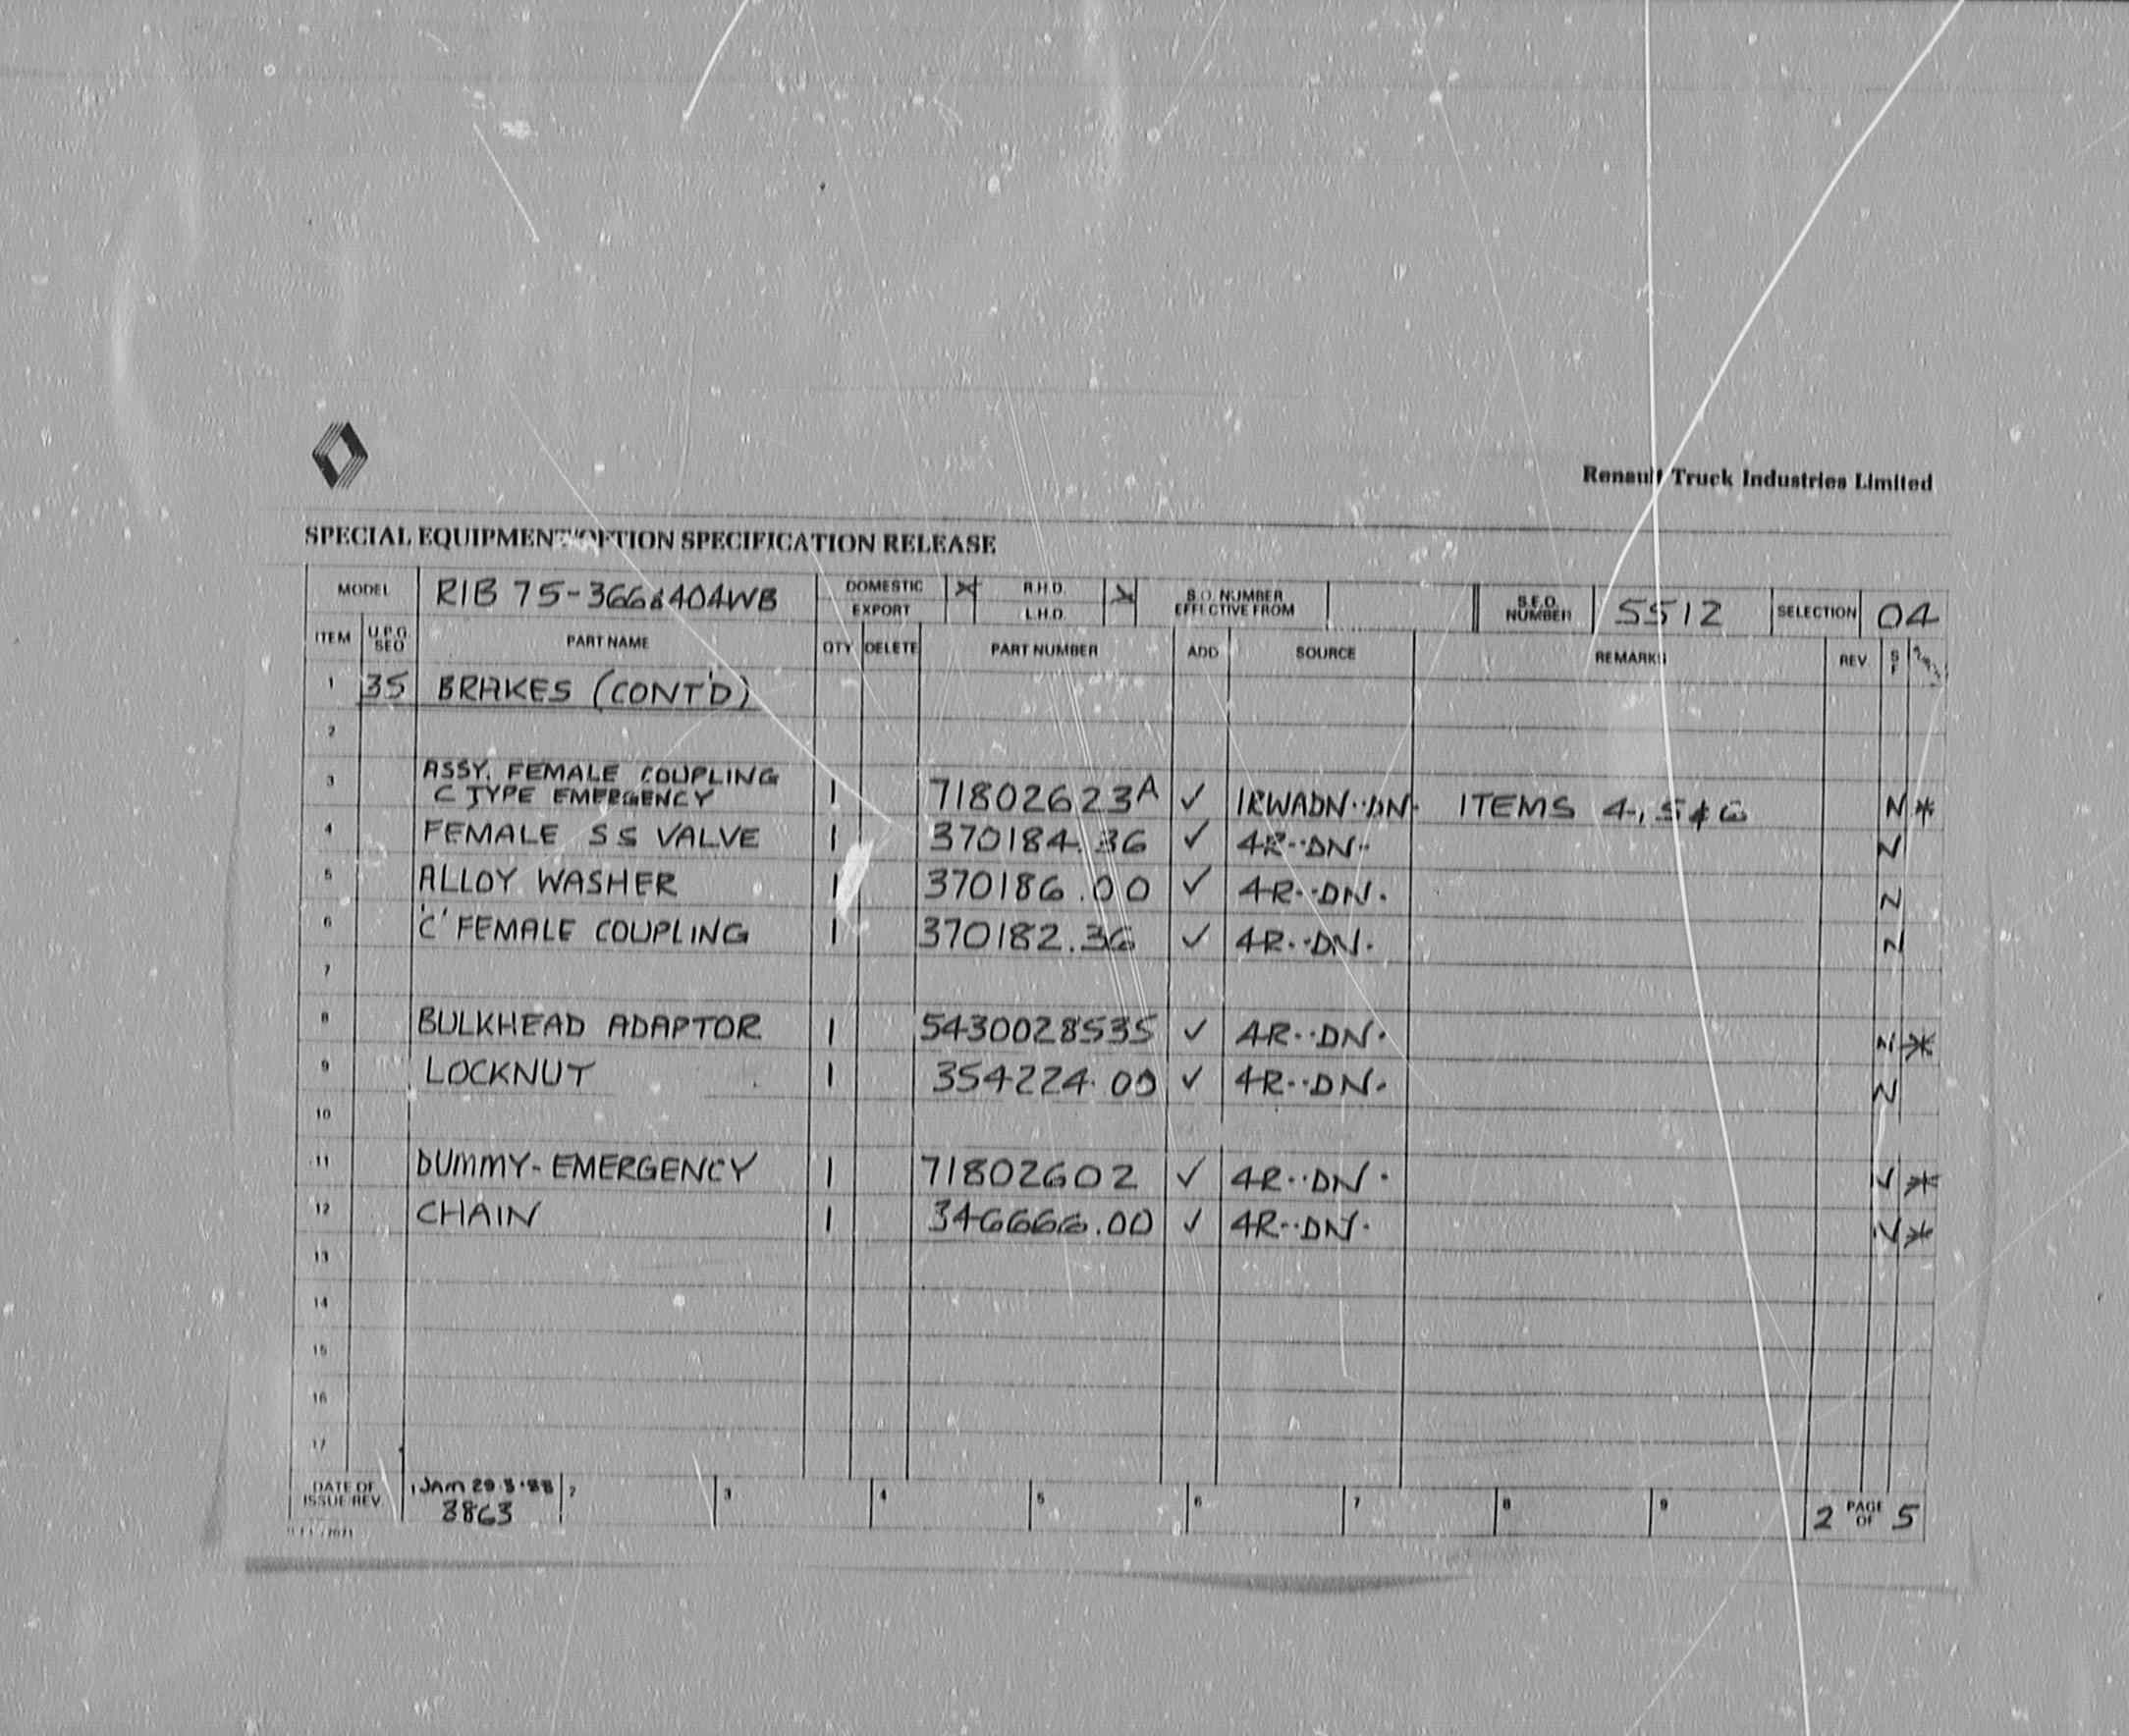 Renault Truck Industries Limited
SPECIAL EQUIPMENT/OPTION SPECIFICATION RELEASE
MODEL RIB 75-366&404WB DOMESTIC R.H.D. S.O. NUMBER EFFECTIVE FROM S.E.O. NUMBER 5512 SELECTION 04
EXPORT L.H.D.
ITEM U.P.G SEQ PART NAME QTY DELETE PART NUMBER ADD SOURCE REMARKS REV S F
1 35 BRAKES (CONT'D)
2
3 ASSY. FEMALE COUPLING
C TYPE EMERGENCY 1 71802623A ✓ 1RWADN··DN· ITEMS 4,5&6 N *
4 FEMALE SS VALVE 1 370184.36 ✓ 4R··DN· N
5 ALLOY WASHER 1 370186.00 ✓ 4R··DN· N
6 'C' FEMALE COUPLING 1 370182.36 ✓ 4R··DN· N
7
8 BULKHEAD ADAPTOR 1 5430028535 ✓ 4R··DN· N *
9 LOCKNUT 1 354224.00 ✓ 4R··DN· N
10
11 DUMMY-EMERGENCY 1 71802602 ✓ 4R··DN· N *
12 CHAIN 1 346666.00 ✓ 4R··DN· N *
13
14
15
16
17
DATE OF ISSUE/REV 1 JAM 29·3·88 2 3 4 5 6 7 8 9 2 PAGE OF 5
3863